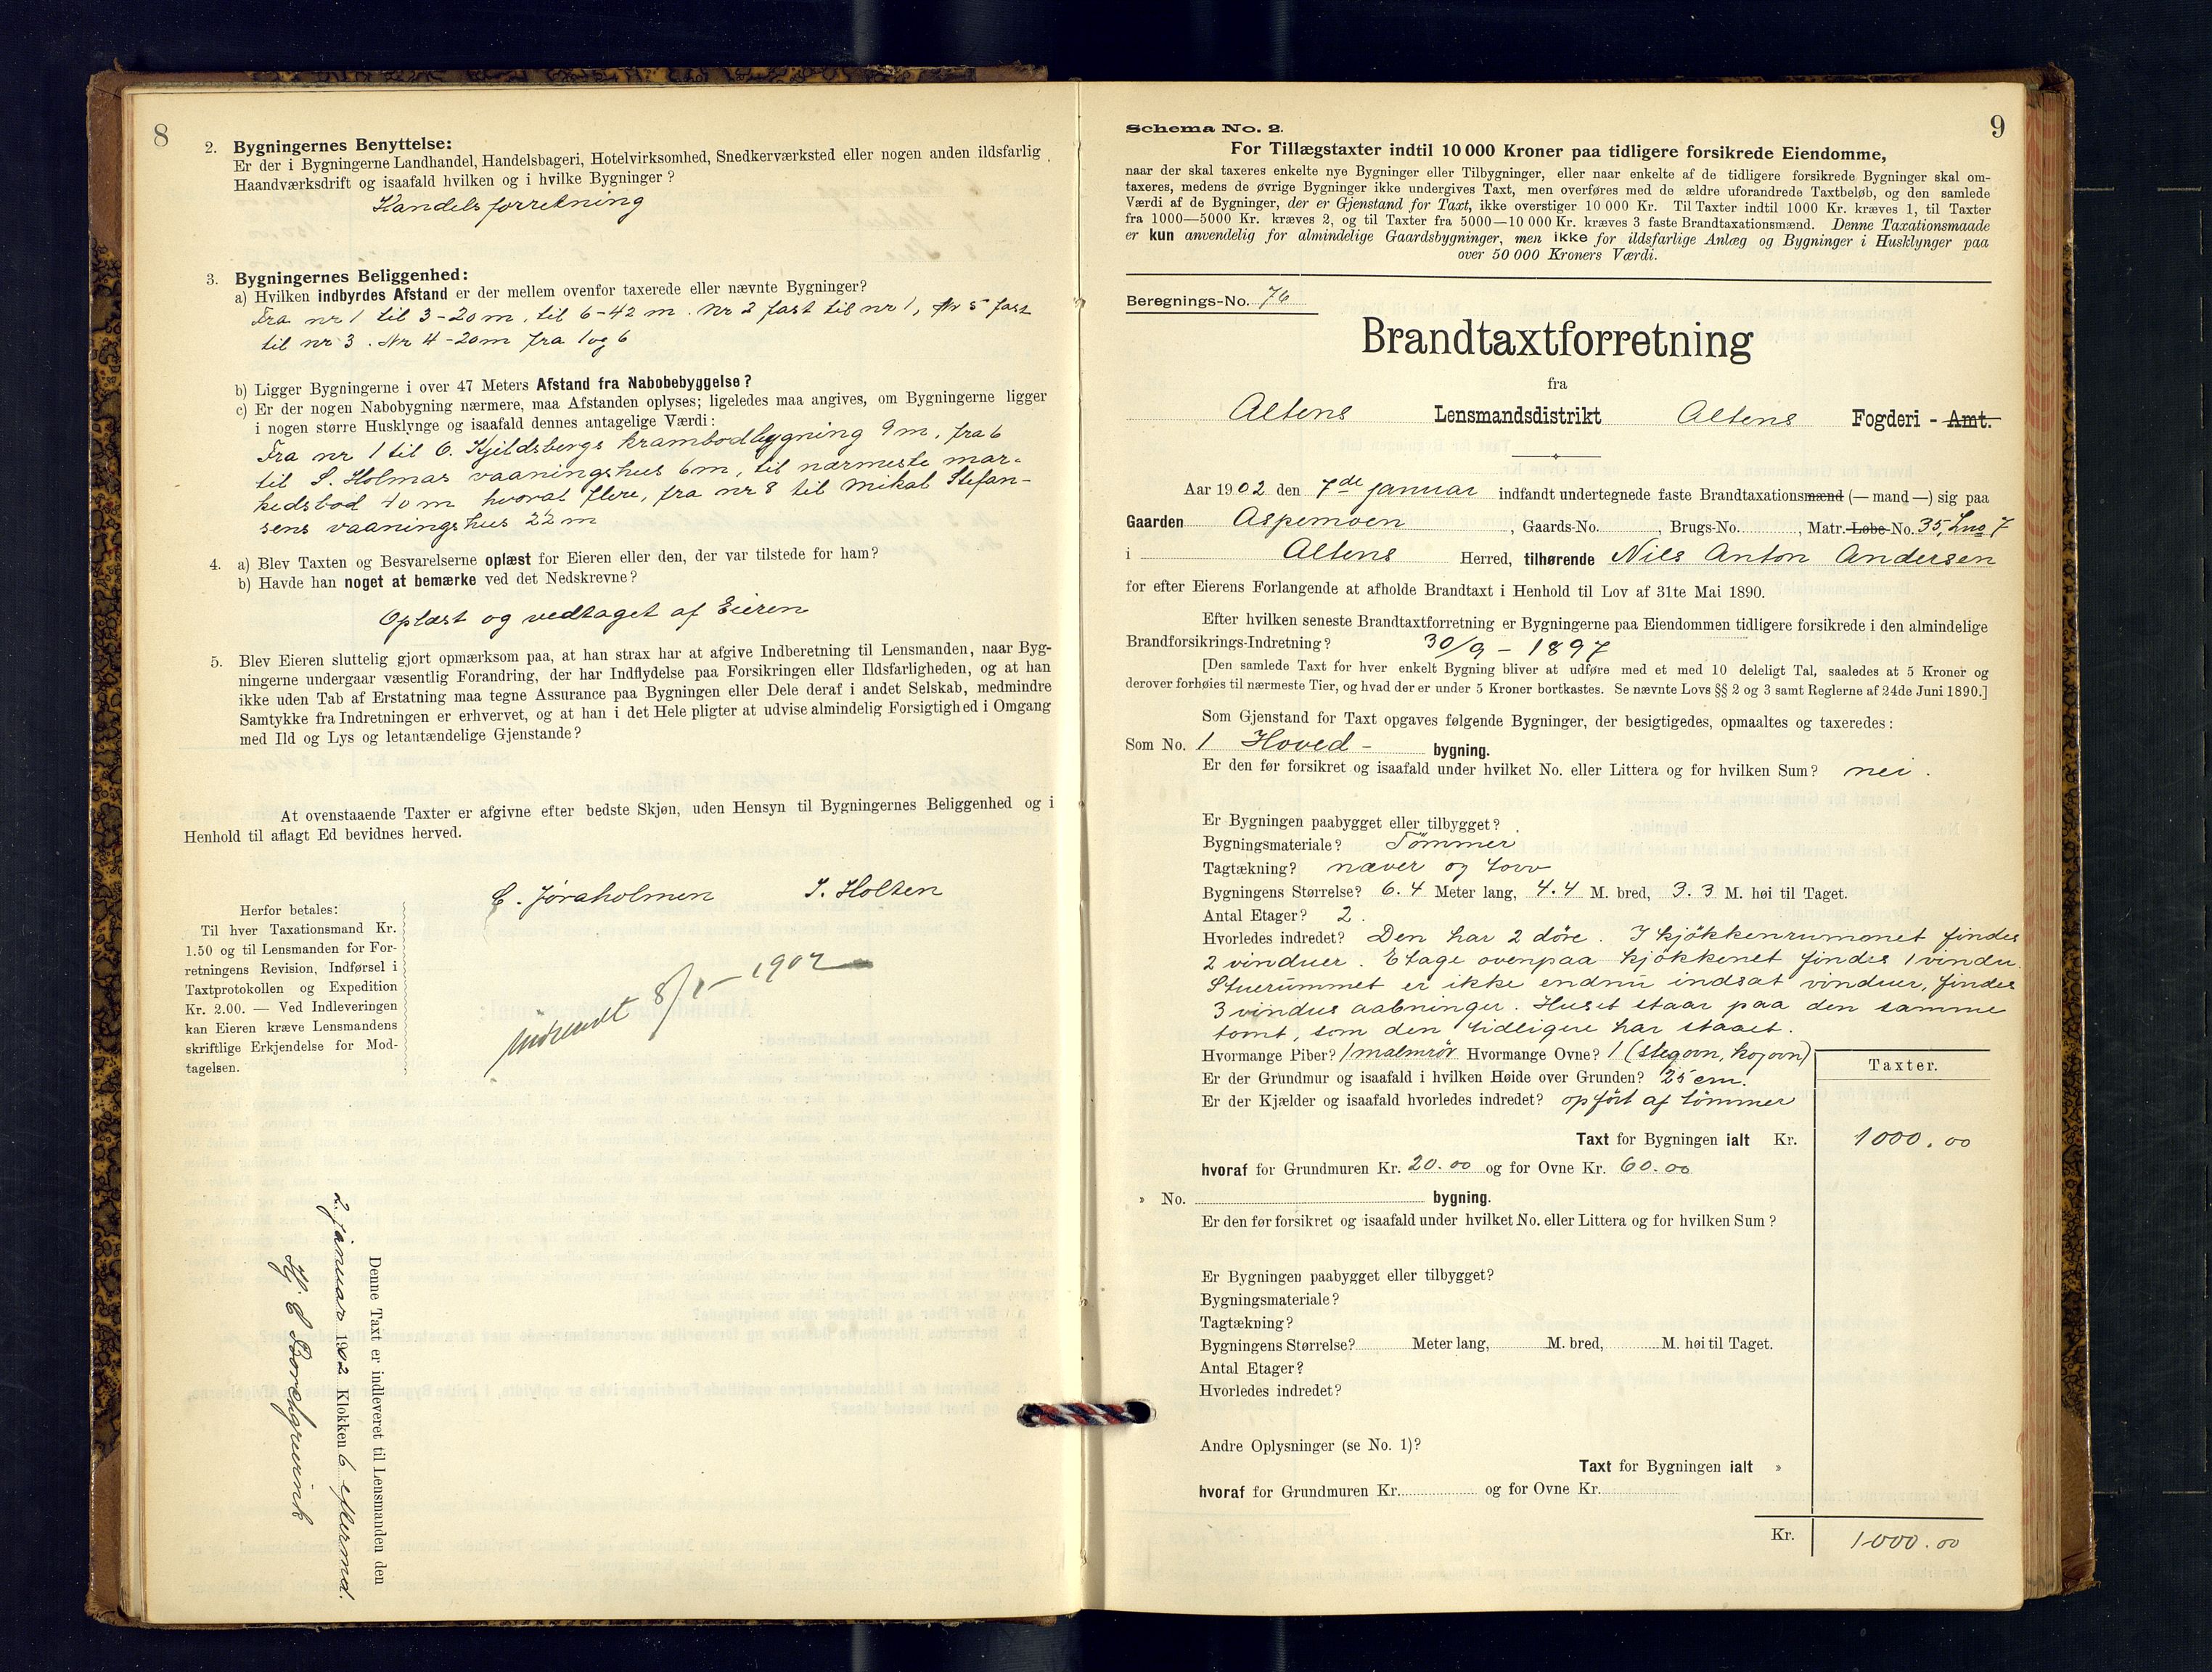 8
2. Bygningernes Benyttelse:
Er der i Bygningerne Landhandel, Handelsbageri, Hotelvirksomhed, Snedkerværksted eller nogen anden ildsfarlig
Haandværksdrift og isaafald hvilken og i hvilke Bygninger?
Handelsforretning
3. Bygningernes Beliggenhed:
a) Hvilken indbyrdes Afstand er der mellem ovenfor taxerede eller nævnte Bygninger?
Fra nr 1 til 3-20 m, til 6-42 m. Nr 2 fast til nr 1, Nr 5 fast
til nr 3. Nr 4-20m fra 1 og 6
b) Ligger Bygningerne i over 47 Meters Afstand fra Nabobebyggelse?
c) Er der nogen Nabobygning nærmere, maa Afstanden oplyses; ligeledes maa angives, om Bygningerne ligger
i nogen større Husklynge og isaafald dennes antagelige Værdi:
Fra nr 1 til O. Kjeldsbergs krambodbygning 9 m, fra 6
til S. Holmas vaaningshus 6m, til nærmeste mar-
kedsbod 40 m hvoraf flere, fra nr 8 til Mikal Stefan-
sens vaaningshus 22 m
4. a) Blev Taxten og Besvarelserne oplæst for Eieren eller den, der var tilstede for ham?
b) Havde han noget at bemærke ved det Nedskrevne?
Oplæst og vedtaget af Eieren
5. Blev Eieren sluttelig gjort opmærksom paa, at han strax har at afgive Indberetning til Lensmanden, naar Byg-
ningerne undergaar væsentlig Forandring, der har Indflydelse paa Forsikringen eller Ildsfarligheden, og at han
ikke uden Tab af Erstatning maa tegne Assurance paa Bygningen eller Dele deraf i andet Selskab, medmindre
Samtykke fra Indretningen er erhvervet, og at han i det Hele pligter at udvise almindelig Forsigtighed i Omgang
med Ild og Lys og letantændelige Gjenstande?
At ovenstaaende Taxter er afgivne efter bedste Skjøn, uden Hensyn til Bygningernes Beliggenhed og i
Henhold til aflagt Ed bevidnes herved.
C. Jöraholmen J. Holten
Herfor betales:
Til hver Taxationsmand Kr.
1.50 og til Lensmanden for For-
retningens Revision, Indførsel i
Taxtprotokollen og Expedition
Kr. 2.00. — Ved Indleveringen
kan Eieren kræve Lensmandens
skriftlige Erkjendelse for Mod-
tagelsen.
Indsendt 8/1-1902
Denne Taxt er indleveret til Lensmanden den
2. januar 1902 Klokken 6 eftermd.
9
Schema No. 2.
For Tillægstaxter indtil 10 000 Kroner paa tidligere forsikrede Eiendomme,
naar der skal taxeres enkelte nye Bygninger eller Tilbygninger, eller naar enkelte af de tidligere forsikrede Bygninger skal om-
taxeres, medens de øvrige Bygninger ikke undergives Taxt, men overføres med de ældre uforandrede Taxtbeløb, og den samlede
Værdi af de Bygninger, der er Gjenstand for Taxt, ikke overstiger 10 000 Kr. Til Taxter indtil 1000 Kr. kræves 1, til Taxter
fra 1000—5000 Kr. kræves 2, og til Taxter fra 5000—10 000 Kr. kræves 3 faste Brandtaxationsmænd. Denne Taxationsmaade
er kun anvendelig for almindelige Gaardsbygninger, men ikke for ildsfarlige Anlæg og Bygninger i Husklynger paa
over 50 000 Kroners Værdi.
Beregnings-No. 76
Brandtaxtforretning
fra
Altens Lensmandsdistrikt Altens Fogderi - Amt.
Aar 1902 den 7de januar indfandt undertegnede faste Brandtaxationsmænd (— mand —) sig paa
Gaarden Aspemoen, Gaards-No. , Brugs-No. , Matr.-Løbe-No. 35, Lno 7
i Altens Herred, tilhørende Nils Anton Andersen
for efter Eierens Forlangende at afholde Brandtaxt i Henhold til Lov af 31te Mai 1890.
Efter hvilken seneste Brandtaxtforretning er Bygningerne paa Eiendommen tidligere forsikrede i den almindelige
Brandforsikrings-Indretning? 30/9 - 1897
[Den samlede Taxt for hver enkelt Bygning bliver at udføre med et med 10 deleligt Tal, saaledes at 5 Kroner og
derover forhøies til nærmeste Tier, og hvad der er under 5 Kroner bortkastes. Se nævnte Lovs §§ 2 og 3 samt Reglerne af 24de Juni 1890.]
Som Gjenstand for Taxt opgaves følgende Bygninger, der besigtigedes, opmaaltes og taxeredes:
Som No. 1 Hoved - bygning.
Er den før forsikret og isaafald under hvilket No. eller Littera og for hvilken Sum? nei.
Er Bygningen paabygget eller tilbygget?
Bygningsmateriale? Tömmer
Tagtækning? næver og torv
Bygningens Størrelse? 6.4 Meter lang, 4.4 M. bred, 3.3 M. høi til Taget.
Antal Etager? 2.
Hvorledes indredet? Den har 2 döre. I kjökkenrummet findes
2 vinduer. Etage ovenpaa kjökkenet findes 1 vindu.
Stuerummet er ikke endnu indsat vinduer, findes
3 vindus aabninger. Huset staar paa den samme
tomt, som den tidligere har staaet.
Hvormange Piber? 1 malmrör Hvormange Ovne? 1 (stegovn, kogovn)
Er der Grundmur og isaafald i hvilken Høide over Grunden? 25 cm.
Er der Kjælder og isaafald hvorledes indredet? opfört af tömmer
Taxter.
Taxt for Bygningen ialt Kr. 1000.00
hvoraf for Grundmuren Kr. 20.00 og for Ovne Kr. 60.00
» No. bygning.
Er den før forsikret og isaafald under hvilket No. eller Littera og for hvilken Sum?
Er Bygningen paabygget eller tilbygget?
Bygningsmateriale?
Tagtækning?
Bygningens Størrelse? Meter lang, M. bred, M. høi til Taget.
Antal Etager?
Hvorledes indredet?
Andre Oplysninger (se No. 1)?
Taxt for Bygningen ialt »
hvoraf for Grundmuren Kr. og for Ovne Kr.
Kr. 1000.00